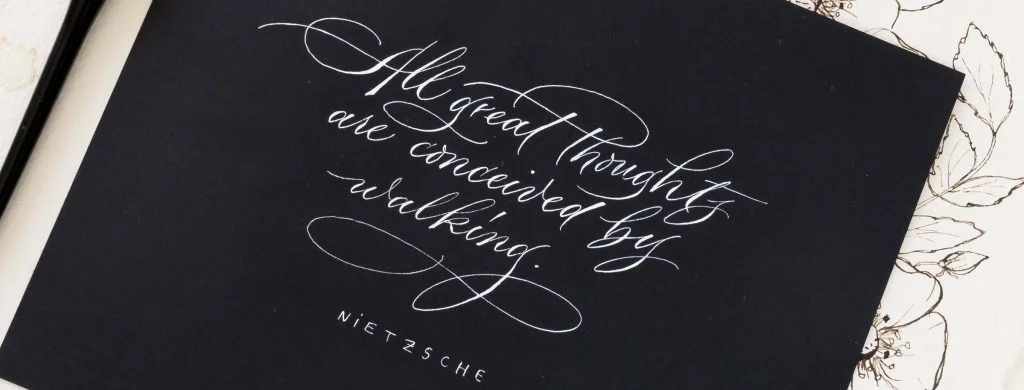 All great thoughts
are conceived by
walking.
NiETZSCHE